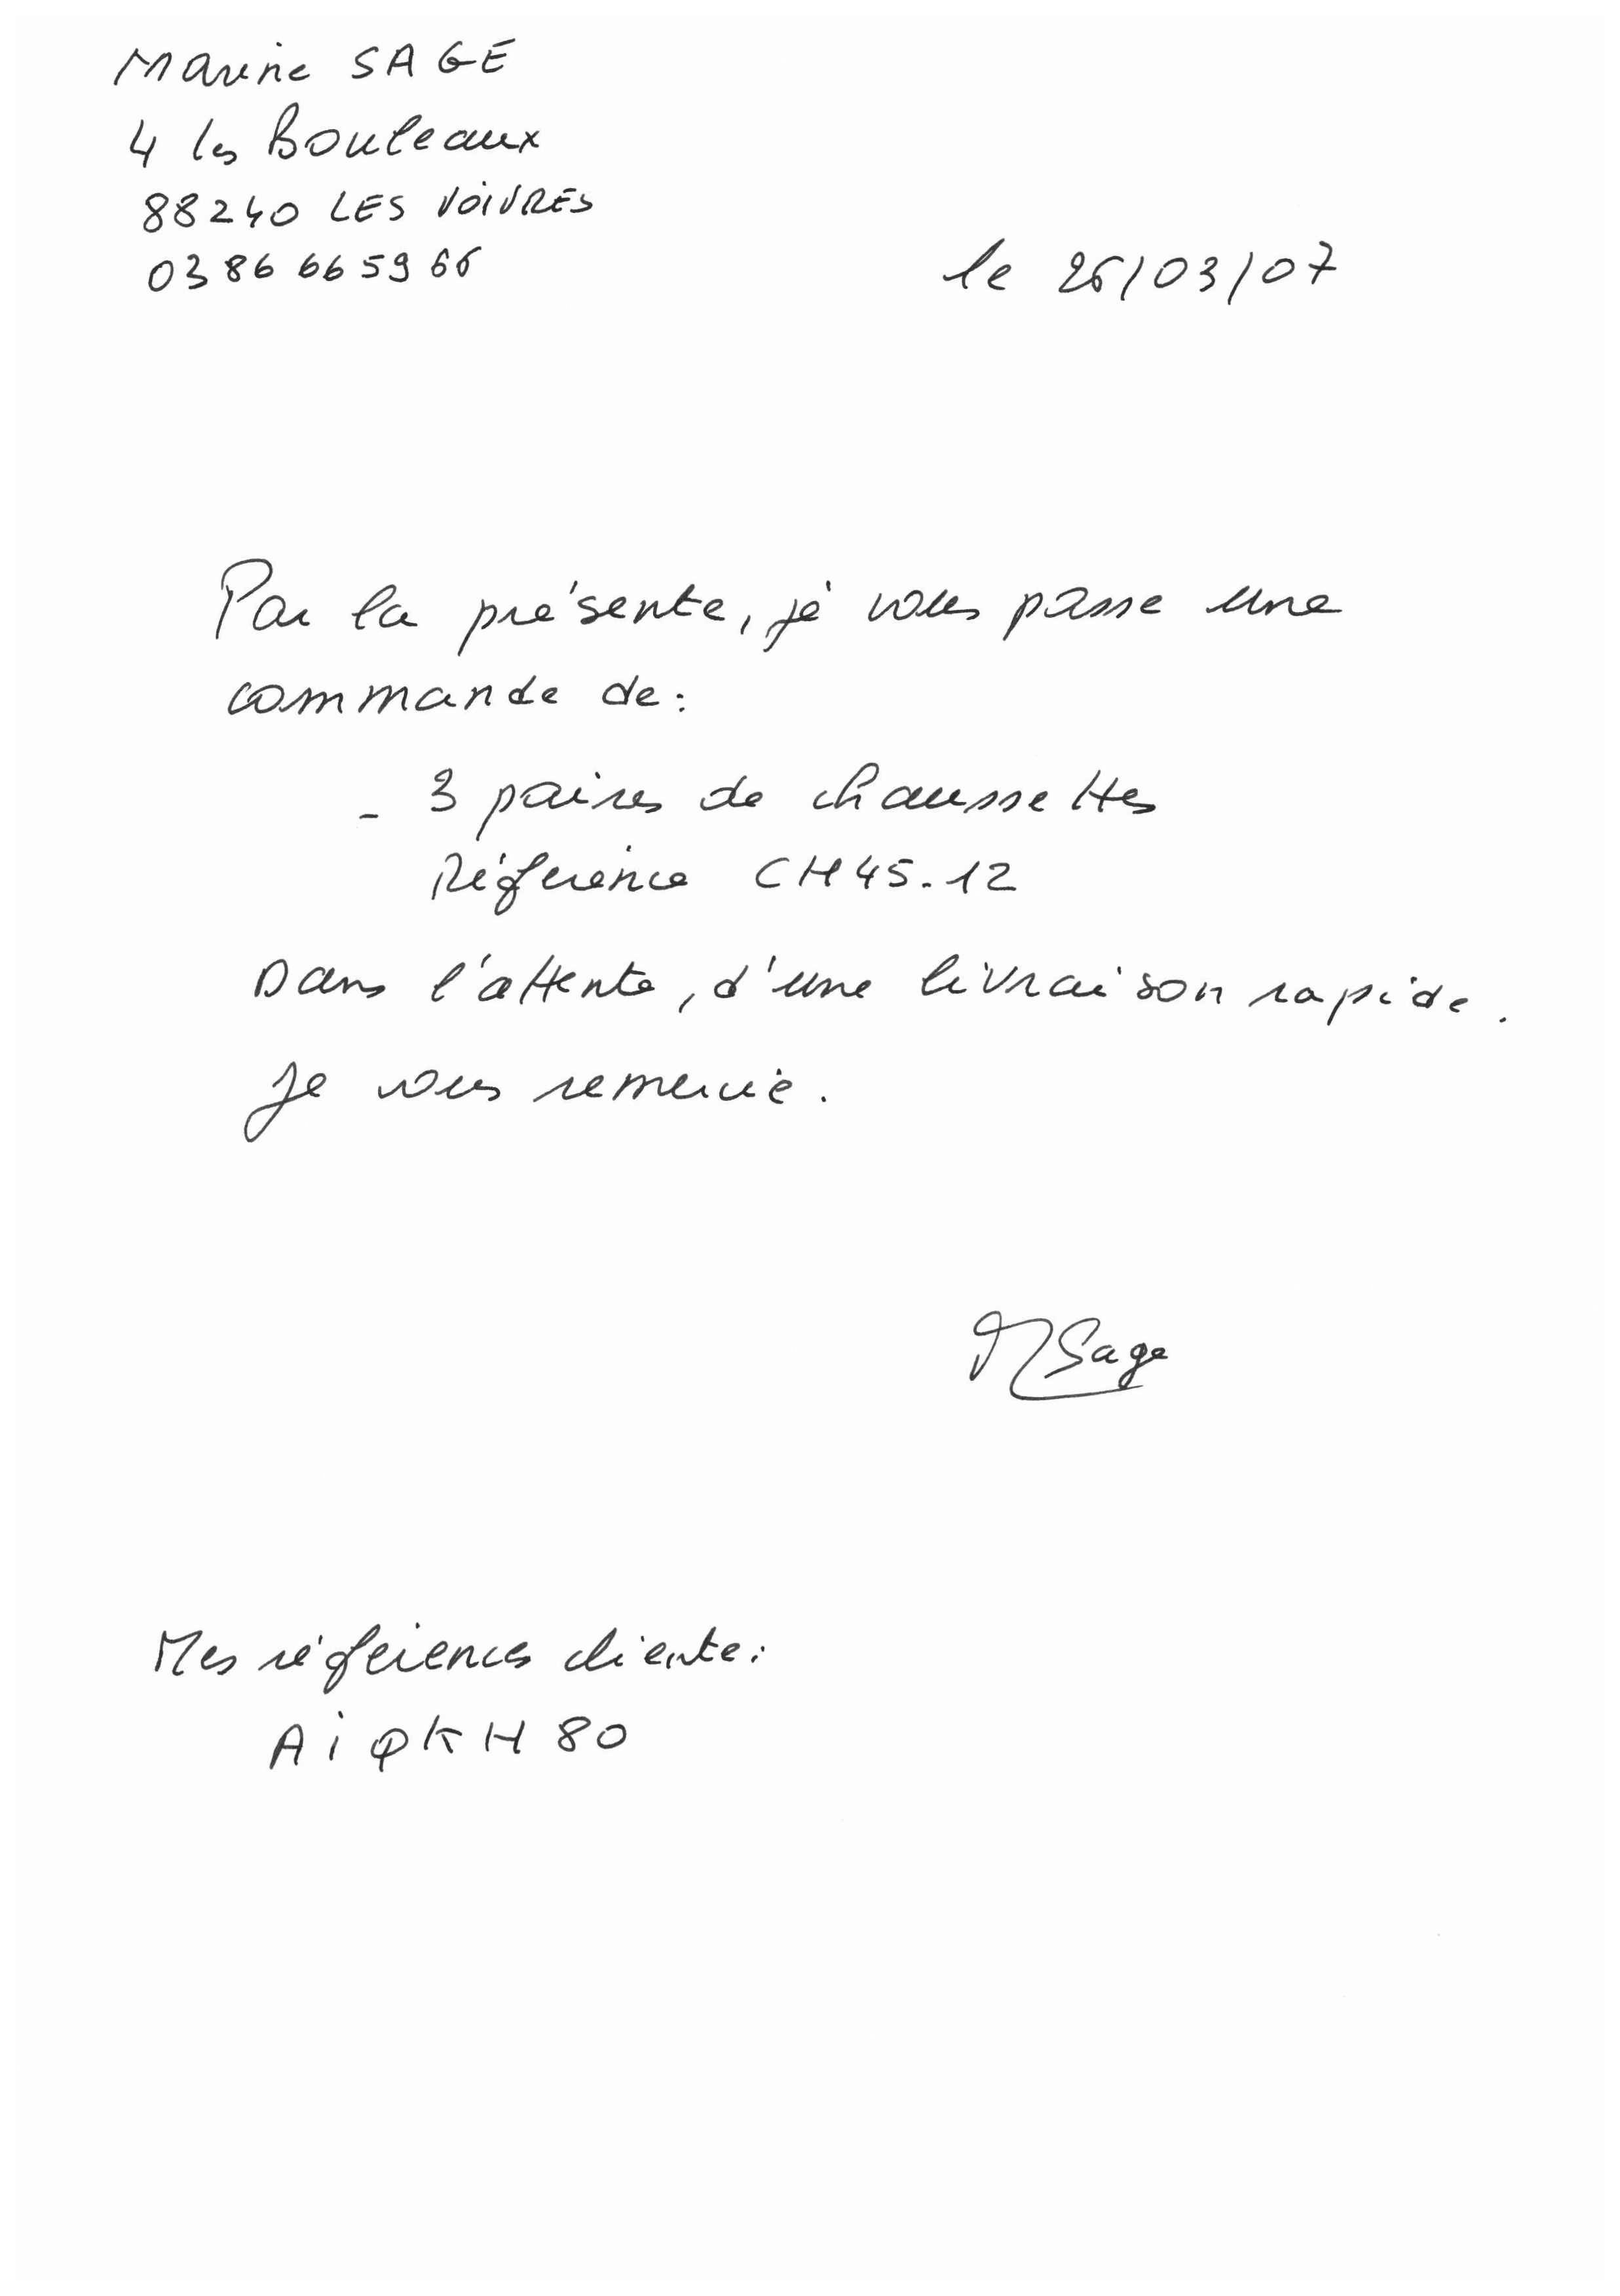 Marine SAGE
4 les Bouleaux
88240 LES VOIVRES
03 86 66 59 66
le 26/03/07
Par la présente, je vous passe une
commande de :
- 3 paires de chaussettes
Référence CH45-12
Dans l'attente, d'une livraison rapide.
Je vous remercie.
MSage
Mes références cliente :
AiQKH80